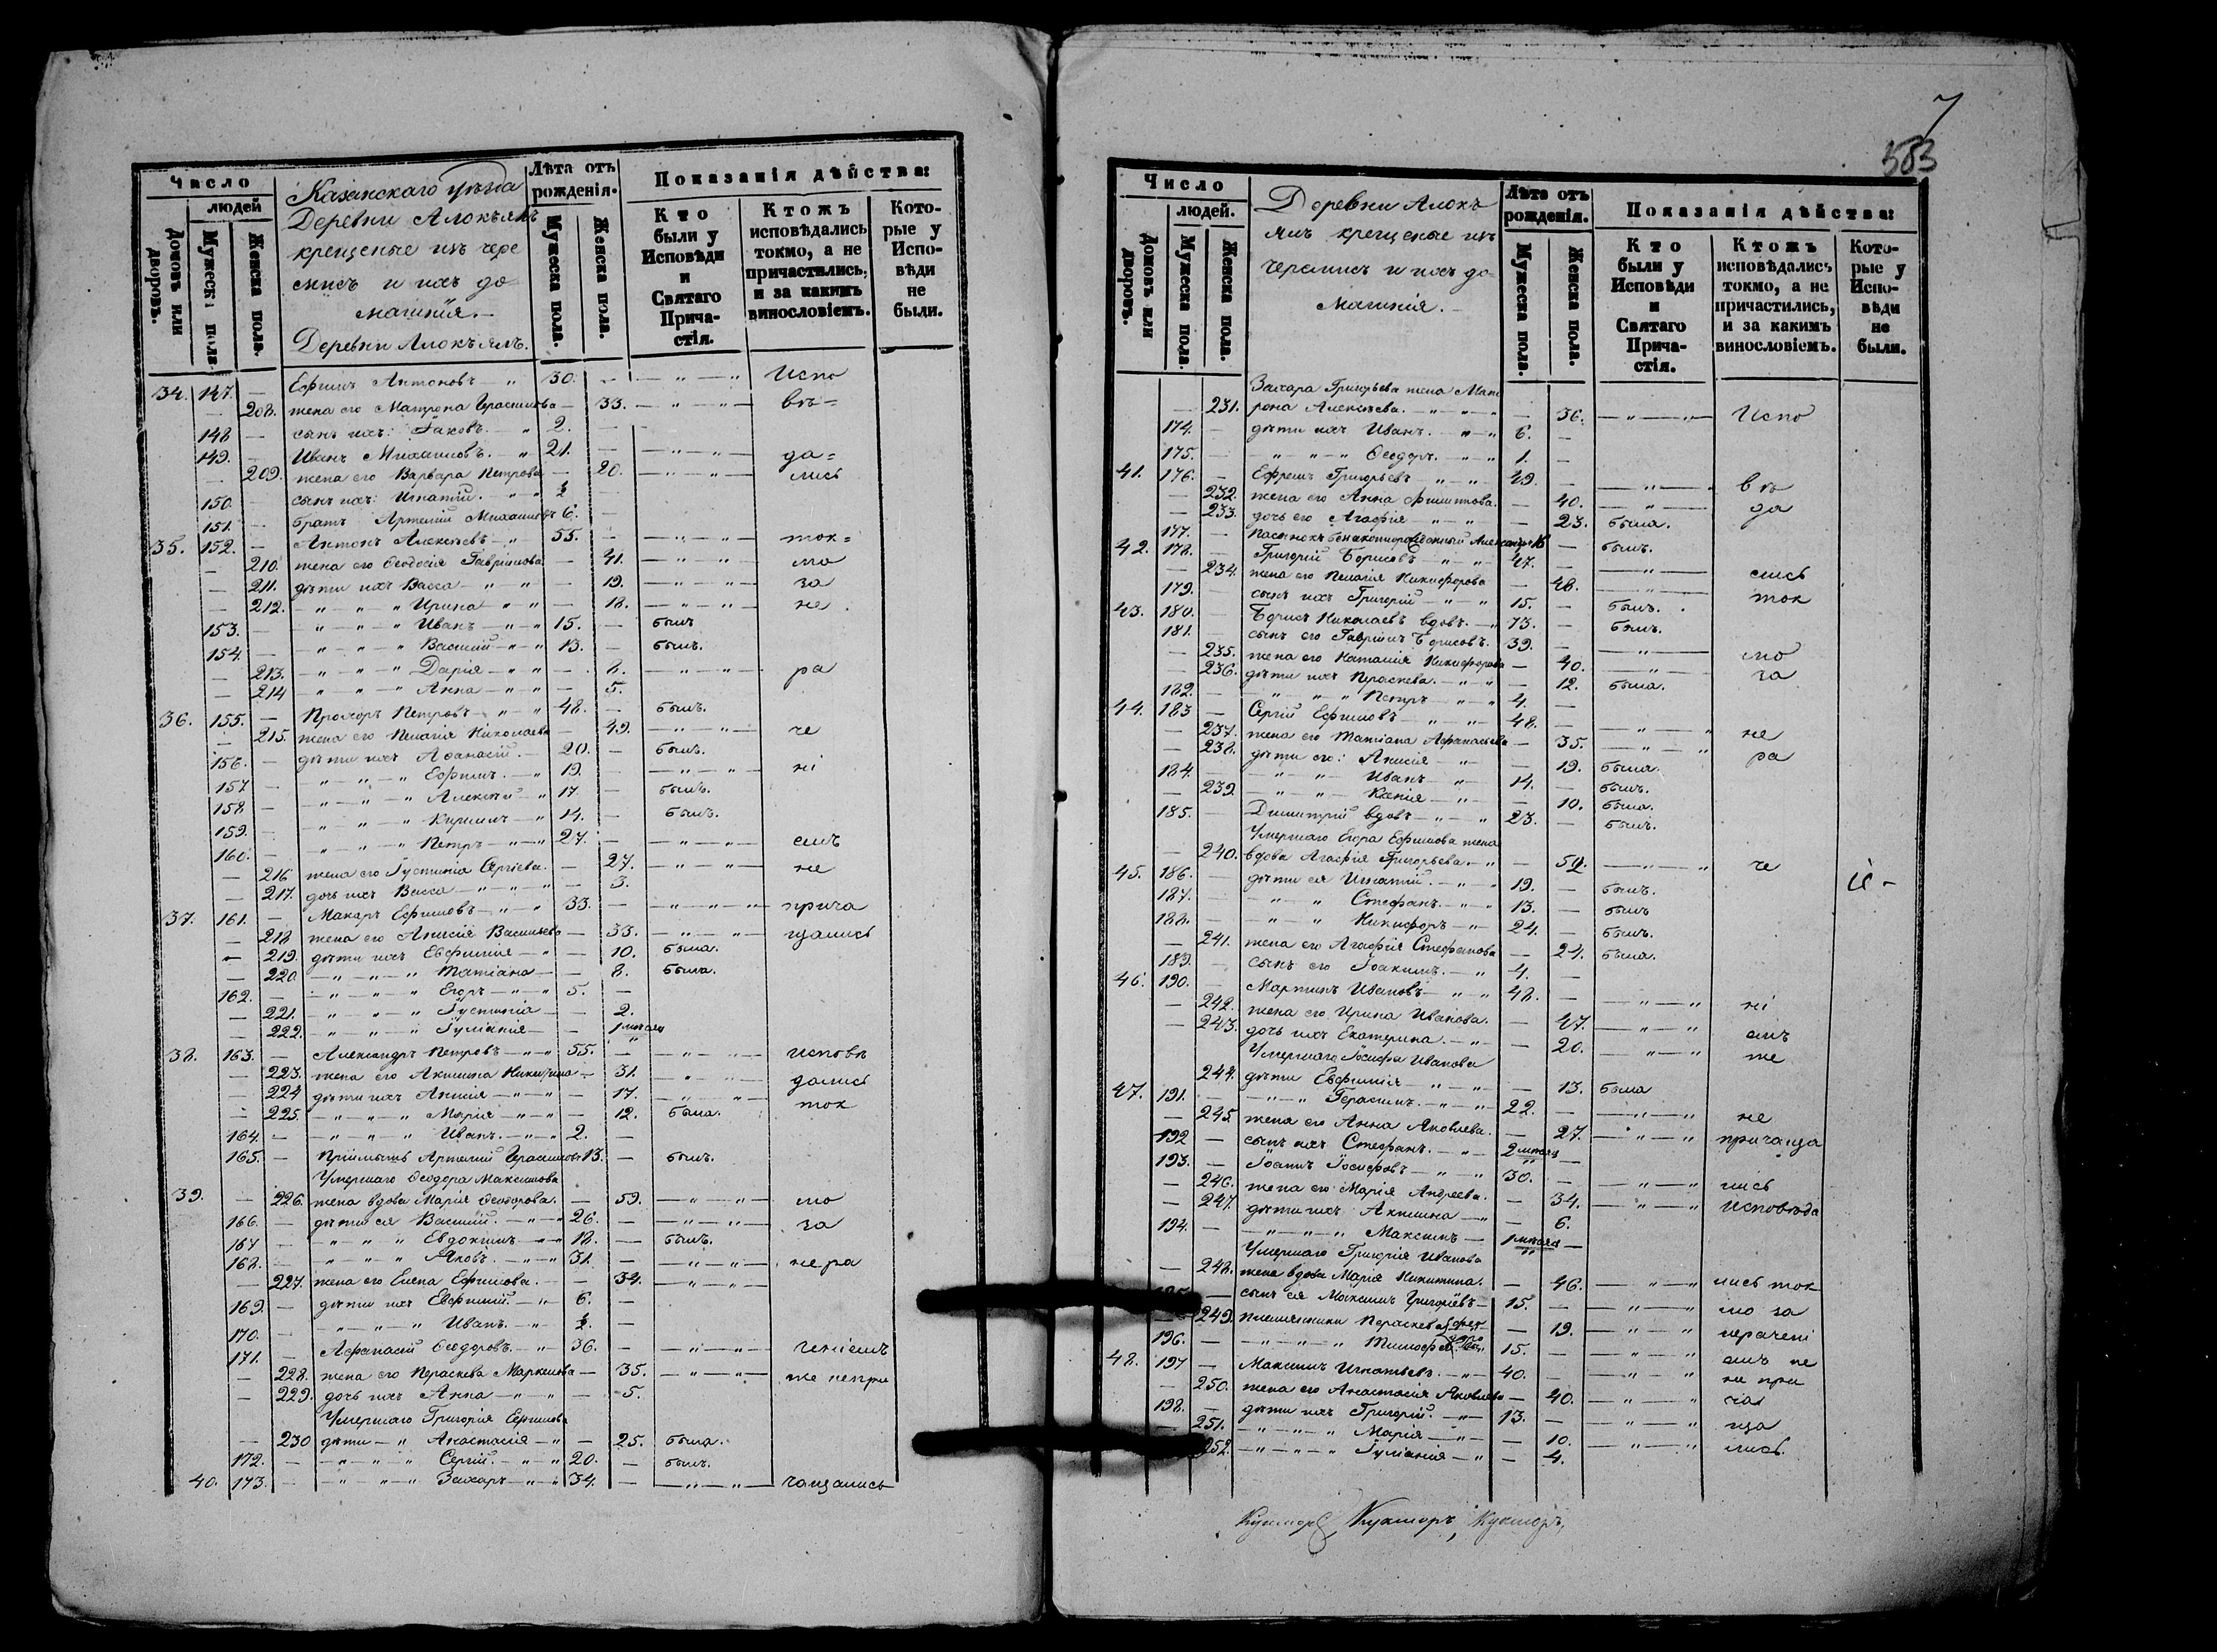 Число
людей
Домовъ или дворовъ.
Мужеск: пола.
Женска пола.
Казанскаго уѣзда
Деревни Алокъямъ
крещеные изъ чере
мисъ и ихъ до
машнія.
Деревни Алокъямъ.
Лѣта отъ рожденія.
Мужеска пола.
Женска пола.
Показанія дѣйства:
Кто были у Исповѣди и Святаго Причастія.
Ктожъ исповѣдались токмо, а не причастились, и за какимъ винословіемъ.
Которые у Исповѣди не были.
34. 147. — Ефимъ Антоновъ — " 30. — — " — " Испо
— 208. жена его Матрона Герасимова — 33. — " — " — вѣ=
148 — сынъ ихъ: Іаковъ. — " 2. —
149. — Иванъ Михаиловъ. — " 21. — — " — " — да=
— 209. жена его Варвара Петрова — 20. — " — " — лись
150. — сынъ ихъ: Игнатій. — " — "
151. — братъ Артемій Михаиловъ 6. —
35. 152. — Антонъ Алексѣевъ — " 55. — — " — " — ток=
— 210. жена его Ѳеодосія Гавріилова — 41. — " — " — мо
— 211. дѣти ихъ Васса — " — " — 19. — " — " — за
— 212. — " — " — " Ирина — " — " — 18. — " — " — не
153. — " — " — " Иванъ — " — " 15. — былъ
154. — — " — " — " Василій — " — " 13. — былъ.
— 213. — " — " — " Дарія — " — " — — " — " ра
— 214 — " — " — " Анна — " — " — 5.
36. 155. — Прохоръ Петровъ — " — " 48. — былъ.
— 215. жена его Пелагія Николаева — 49. — " — " — че
156. — дѣти ихъ Аѳанасій. — 20. — былъ.
157 — — " — " — " Ефимъ. — " 19. — — " — " — ні
158 — — " — " — " Алексѣй — " 17. — былъ.
159. — — " — " — " Кирилъ — " 14. — былъ.
160. — — " — " — " Петръ — " — " 27. — — " — " — емъ
— 216 жена его Іустинія Сергіева. — 27. — " — " — не
— 217. дочь ихъ Васса — " — " — " — 3.
37. 161. — Макаръ Ефимовъ — " — " 33. — — " — " — " — прича
— 218 жена его Анисія Васильева — 33. — " — " — щались
— 219. дѣти ихъ Евфимія — " — 10. была.
— 220 — " — " — " Татіана — " — 8. была.
162. — — " — " — " Егоръ — " — " 5. —
— 221. — " — " — " Іустинія — — 2.
— 222. — " — " — " Іуліанія — — 1 мѣсяц
38. 163. — Александръ Петровъ — " — " 55. — — " — " — исповѣ
— 223. жена его Акилина Никитина — 31. — " — " — дались
— 224 дѣти ихъ Анисія — " — " — 17. — " — " ток
— 225. — " — " — " Марія — " — " — 12. была.
164. — — " — " — " Иванъ. — " — " 2. —
165. — Пріимышъ Артемій Герасимовъ 13. — былъ.
Умершаго Ѳеодора Максимова
39. — 226. жена вдова Марія Ѳеодорова. — 59. — " — " — мо
166. — дѣти ея Василій. — " — " 26. — — " — " — за
167 — — " — " — " Евдокимъ — " — " 18. — былъ.
168. — — " — " — " Яковъ. — " — " 31. — — " — " — нера
— 227. жена его Елена Ефимова. — — 34. — " — " —
169. — дѣти ихъ Евфимій. — " 6. —
170. — — " — " — " Иванъ. — " —
171. — Аѳанасій Ѳеодоровъ. — " 36. — — " — " ченіемъ
— 228. жена его Параскева Маркелова — 35. — " — " — же непри
— 229. дочь ихъ Анна — " — " — 5.
Умершаго Григорія Ефимова
— 230 дѣти — " Анастасія — " — 25. была.
172. — — " — " — " Сергій. — " — " 20. — былъ.
40. 173. — — " — " — " Захаръ — " — " 34. — — " — " — чащались
7
583
Число
людей.
Домовъ или дворовъ.
Мужеска пола.
Женска пола.
Деревни Алокъ
ямъ крещеные изъ
черемисъ и ихъ до=
машнія.
Лѣта отъ рожденія.
Мужеска пола.
Женска пола.
Показанія дѣйства:
Кто были у Исповѣди и Святаго Причастія.
Ктожъ исповѣдались токмо, а не причастились, и за какимъ винословіемъ.
Которые у Исповѣди не были.
Захара Григорьева жена Мат
— 231. рона Алексѣева. — " — " — 36. — " — " — Испо
174. — дѣти ихъ Иванъ. — " — " 6. —
175. — — " — " — " Ѳеодоръ. — " — " 1. —
41. 176. — Ефремъ Григорьевъ — " — " 49. — — " — вѣ
— 232. жена его Анна Филиппова. — 40. — " — да
— 233. дочь его Агафія — " — " — 23. была.
177. — Пасынокъ незаконорожденный Александръ 16 — былъ.
42. 178. — Григорій Борисовъ — " — " 47. — — " — лись
— 234. жена его Пелагія Никифорова — 48. — " — ток
179. — сынъ ихъ Григорій — " — " 15. — былъ.
43. 180. — Борисъ Николаевъ вдовъ. — " 73. — былъ.
181. — сынъ его Гавріилъ Борисовъ. 39. — — " — мо
— 235. жена его Наталія Никифорова — 40. — " — за
— 236. дѣти ихъ Параскева. — " — " — 12. была.
182. — — " — " — " Петръ — " — " 4. —
44. 183 — Сергій Ефимовъ — " — " 48. — — " — " не
— 237. жена его Татіана Аѳанасьева — 35. — " — " ра
— 238. дѣти его: Анисія — " — 19. была.
184. — — " — " — Иванъ — " — 14. — былъ.
— 239. — " — " — Ксенія — " — — 10. была.
185. — Димитрій вдовъ — " — " 23. — былъ.
Умершаго Егора Ефимова жена
— 240. вдова Агафія Григорьева. — " — 50. — " — " че
45. 186. — дѣти ея Игнатій. — " — " 19. — былъ.
187. — — " — " Стефанъ. — " — " 13. — былъ
188. — — " — " Никифоръ — " — 24. — былъ.
— 241. жена его Агафія Стефанова — 24. была.
189. — сынъ его Іоакимъ. — " 4. —
46. 190. — Мартинъ Ивановъ — " — " 48. — — " — " ні
— 242. жена его Ирина Иванова. — 47. — " — " емъ
— 243. дочь ихъ Екатерина. — " — — 20. — " — " же
Умершаго Іосифа Иванова
244. дѣти Евфимія — " — " — 13. была
47. 191. — — " — " Герасимъ. — " — " 22. — — " — " не
— 245. жена его Анна Яковлева. — 27. — " — " причаща
192 — сынъ ихъ Стефанъ. — " — 2 мѣсяц —
193. — Іоаннъ Іосифовъ — " — " 30. — — " — " лись
— 246. жена его Марія Андреева. — 34. — " — " исповѣда
— 247. дѣти ихъ Акилина — " — 6.
194. — — " — " — " Максимъ — 1 мѣсяц —
Умершаго Григорія Иванова
— 248. жена вдова Марія Никитина. — 46. — " — " лись ток
— сынъ ея Максимъ Григорьевъ — 15. — — " — " мо за
— 249. племянники Параскева — 19. — " — " нерачені
196. — — " — " — " Тимофей 15. — — " — " емъ не
48. 197 — Максимъ Игнатьевъ. — " — 40. — — " — " не при
— 250. жена его Анастасія Яковлева — 40. — " — " ча
198. — дѣти ихъ Григорій. — " — 13. — — " — " ща
— 251. — " — " — " Марія — " — — 10. — " — " лись.
252. — " — " — " Іуліанія — " — 4.
Кукморъ, Кукморъ, Кукморъ,